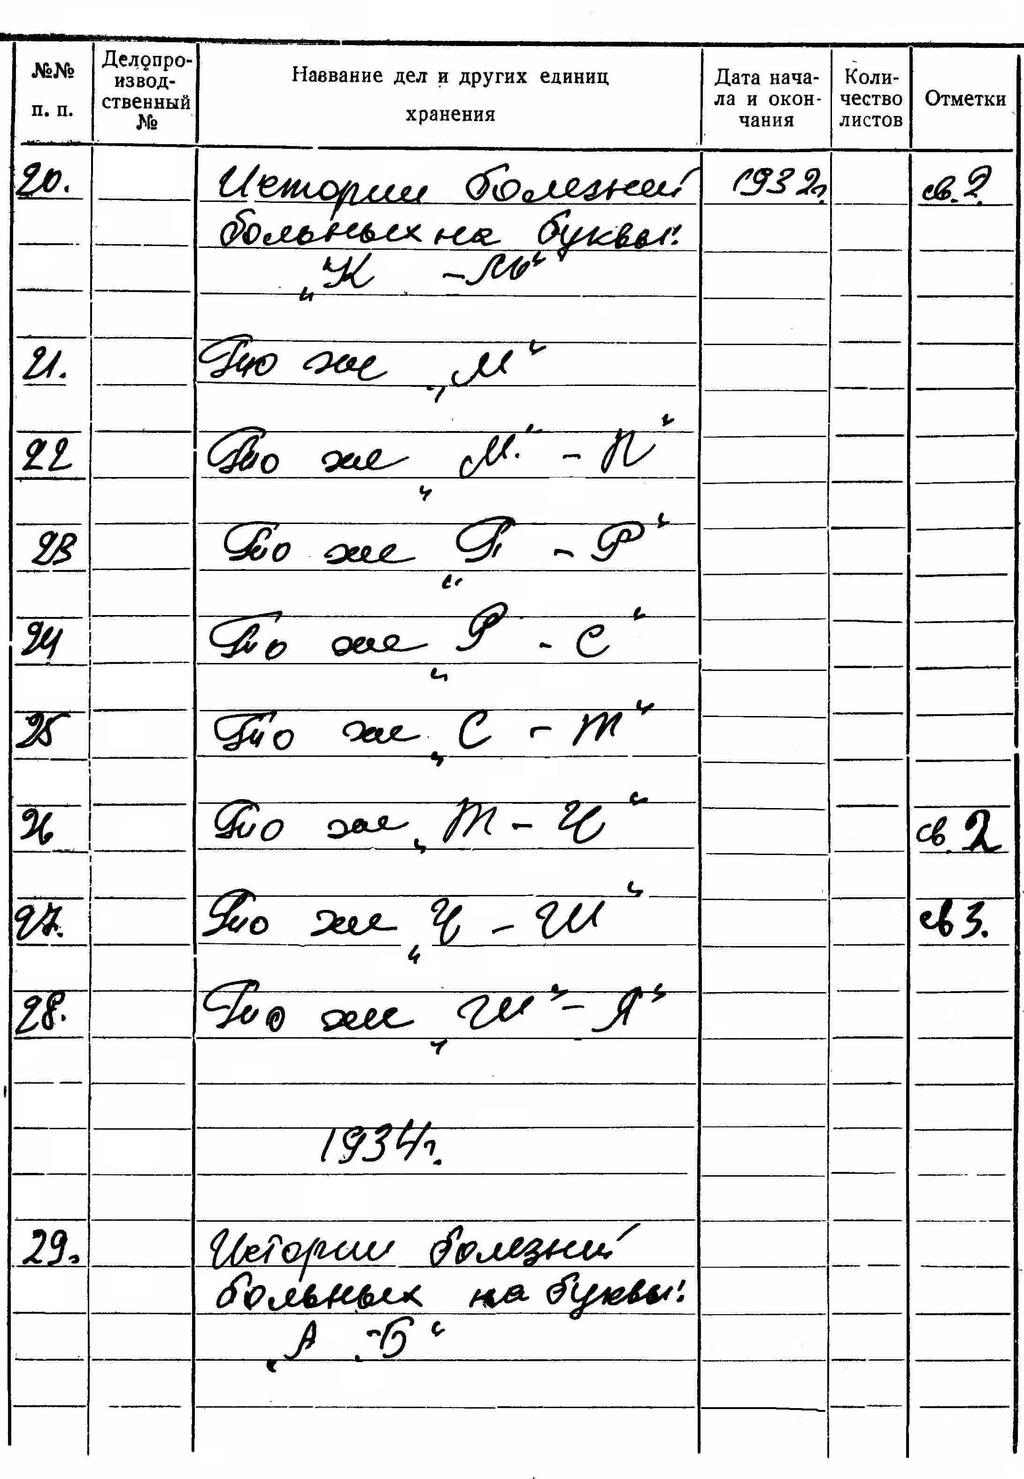 №№ п. п.
Делопро-
извод-
ственный
№
Название дел и других единиц
хранения
Дата нача-
ла и окон-
чания
Коли-
чество
листов
Отметки
20. Истории болезней 1932г. св. 2.
больных на буквы:
„К -Ль“
21. То же „М“
22 То же „М“ - П“
23 То же „П - Р“
24 То же „Р - С“
25 То же „С - Т“
26 То же „Т - Ч“ св. 2
27. То же „Ч - Ш“ св 3.
28. То же „Ш“ - Я“
1934г.
29. Истории болезний
больных на буквы:
„А -Б“